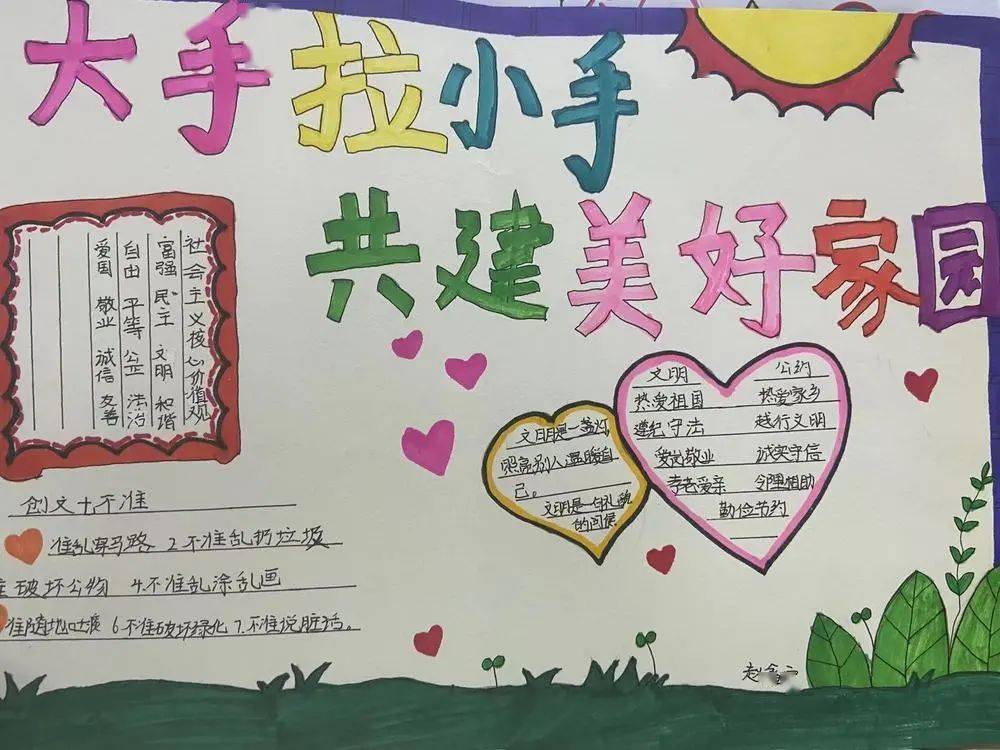 大手拉小手
共建美好家园
社会主义核心价值观
富强 民主 文明 和谐
自由 平等 公正 法治
爱国 敬业 诚信 友善
文明 公约
热爱祖国 热爱家乡
遵纪守法 越行文明
爱岗敬业 诚实守信
孝老爱亲 邻里相助
勤俭节约
文明是一盏灯
照亮别人温暖自
己。
文明是一句礼貌
的问候
创文十不准
准乱穿马路 2.不准乱扔垃圾
准破坏公物 4.不准乱涂乱画
准随地吐痰 6.不准破坏绿化 7.不准说脏话。
赵